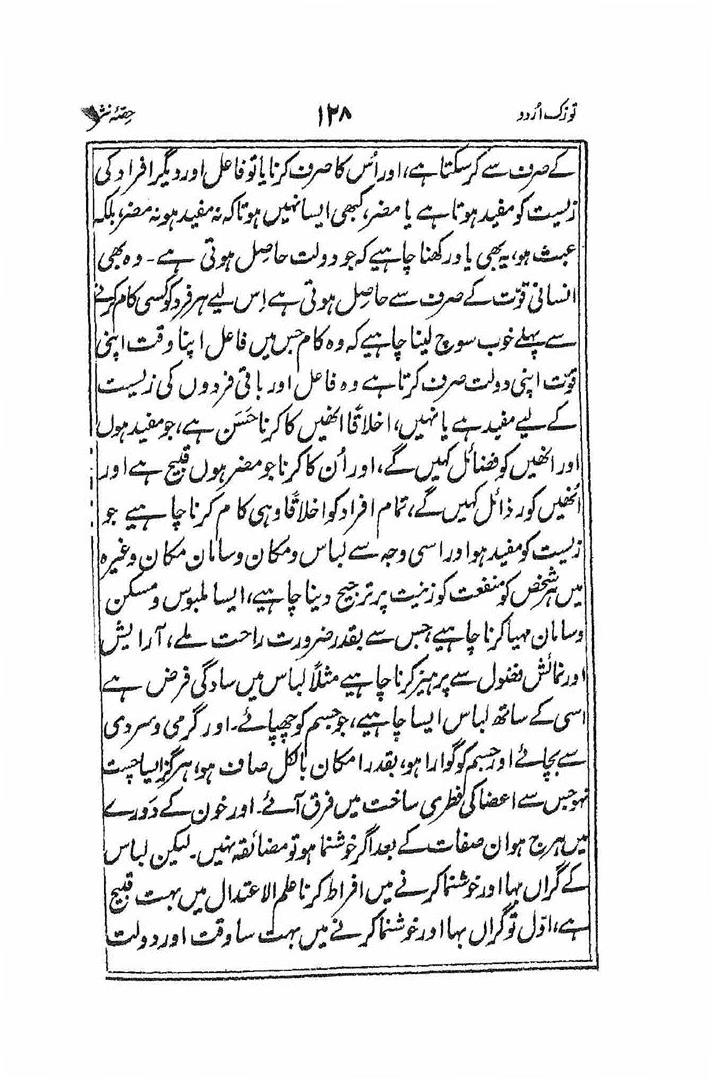 توزک اُردو ۱۲۸ حصّۂ نثر
کے صرف سے کر سکتا ہے، اور اُس کا صرف کرنا یا تو فاعل اور دیگر افراد کی
زیست کو مفید ہوتا ہے یا مضر، کبھی ایسا نہیں ہوتا کہ نہ مفید ہو نہ مضر، بلکہ
عبث ہو، یہ بھی یاد رکھنا چاہیے کہ جو دولت حاصل ہوتی ہے۔ وہ بھی
انسانی قوّت کے صرف سے حاصل ہوتی ہے اِس لیے ہر فرد کو کسی کام کرنے
سے پہلے خوب سوچ لینا چاہیے کہ وہ کام جس میں فاعل اپنا وقت اپنی
قوّت اپنی دولت صرف کرتا ہے وہ فاعل اور باقی فردوں کی زیست
کے لیے مفید ہے یا نہیں، اخلاقاً انھیں کا کرنا حَسَن ہے، جو مفید ہوں
اور انھیں کو فضائل کہیں گے، اور اُن کا کرنا جو مضر ہوں قبیح ہے اور
اُنھیں کو رذائل کہیں گے، تمام افراد کو اخلاقاً وہی کام کرنا چاہیے جو
زیست کو مفید ہو اور اسی وجہ سے لباس و مکان و سامان مکان وغیرہ
میں ہر شخص کو منفعت کو زینت پر ترجیح دینا چاہیے، ایسا ملبوس و مسکن
و سامان مہیا کرنا چاہیے جس سے بقدر ضرورت راحت ملے، آرایش
اور نمائش فضول سے پرہیز کرنا چاہیے مثلاً لباس میں سادگی فرض ہے
اسی کے ساتھ لباس ایسا چاہیے، جو جسم کو چھپائے۔ اور گرمی و سردی
سے بچائے اور جسم کو گوارا ہو، بقدر امکان بالکل صاف ہو، ہرگز ایسا چست
نہو جس سے اعضا کی فطری ساخت میں فرق آئے۔ اور خون کے دَورے
میں ہرج ہو ان صفات کے بعد اگر خوشنما ہو تو مضائقہ نہیں۔ لیکن لباس
کے گراں بہا اور خوشنما کرنے میں افراط کرنا علم الاعتدال میں بہت قبیح
ہے، اوّل تو گراں بہا اور خوشنما کرنے میں بہت سا وقت اور دولت